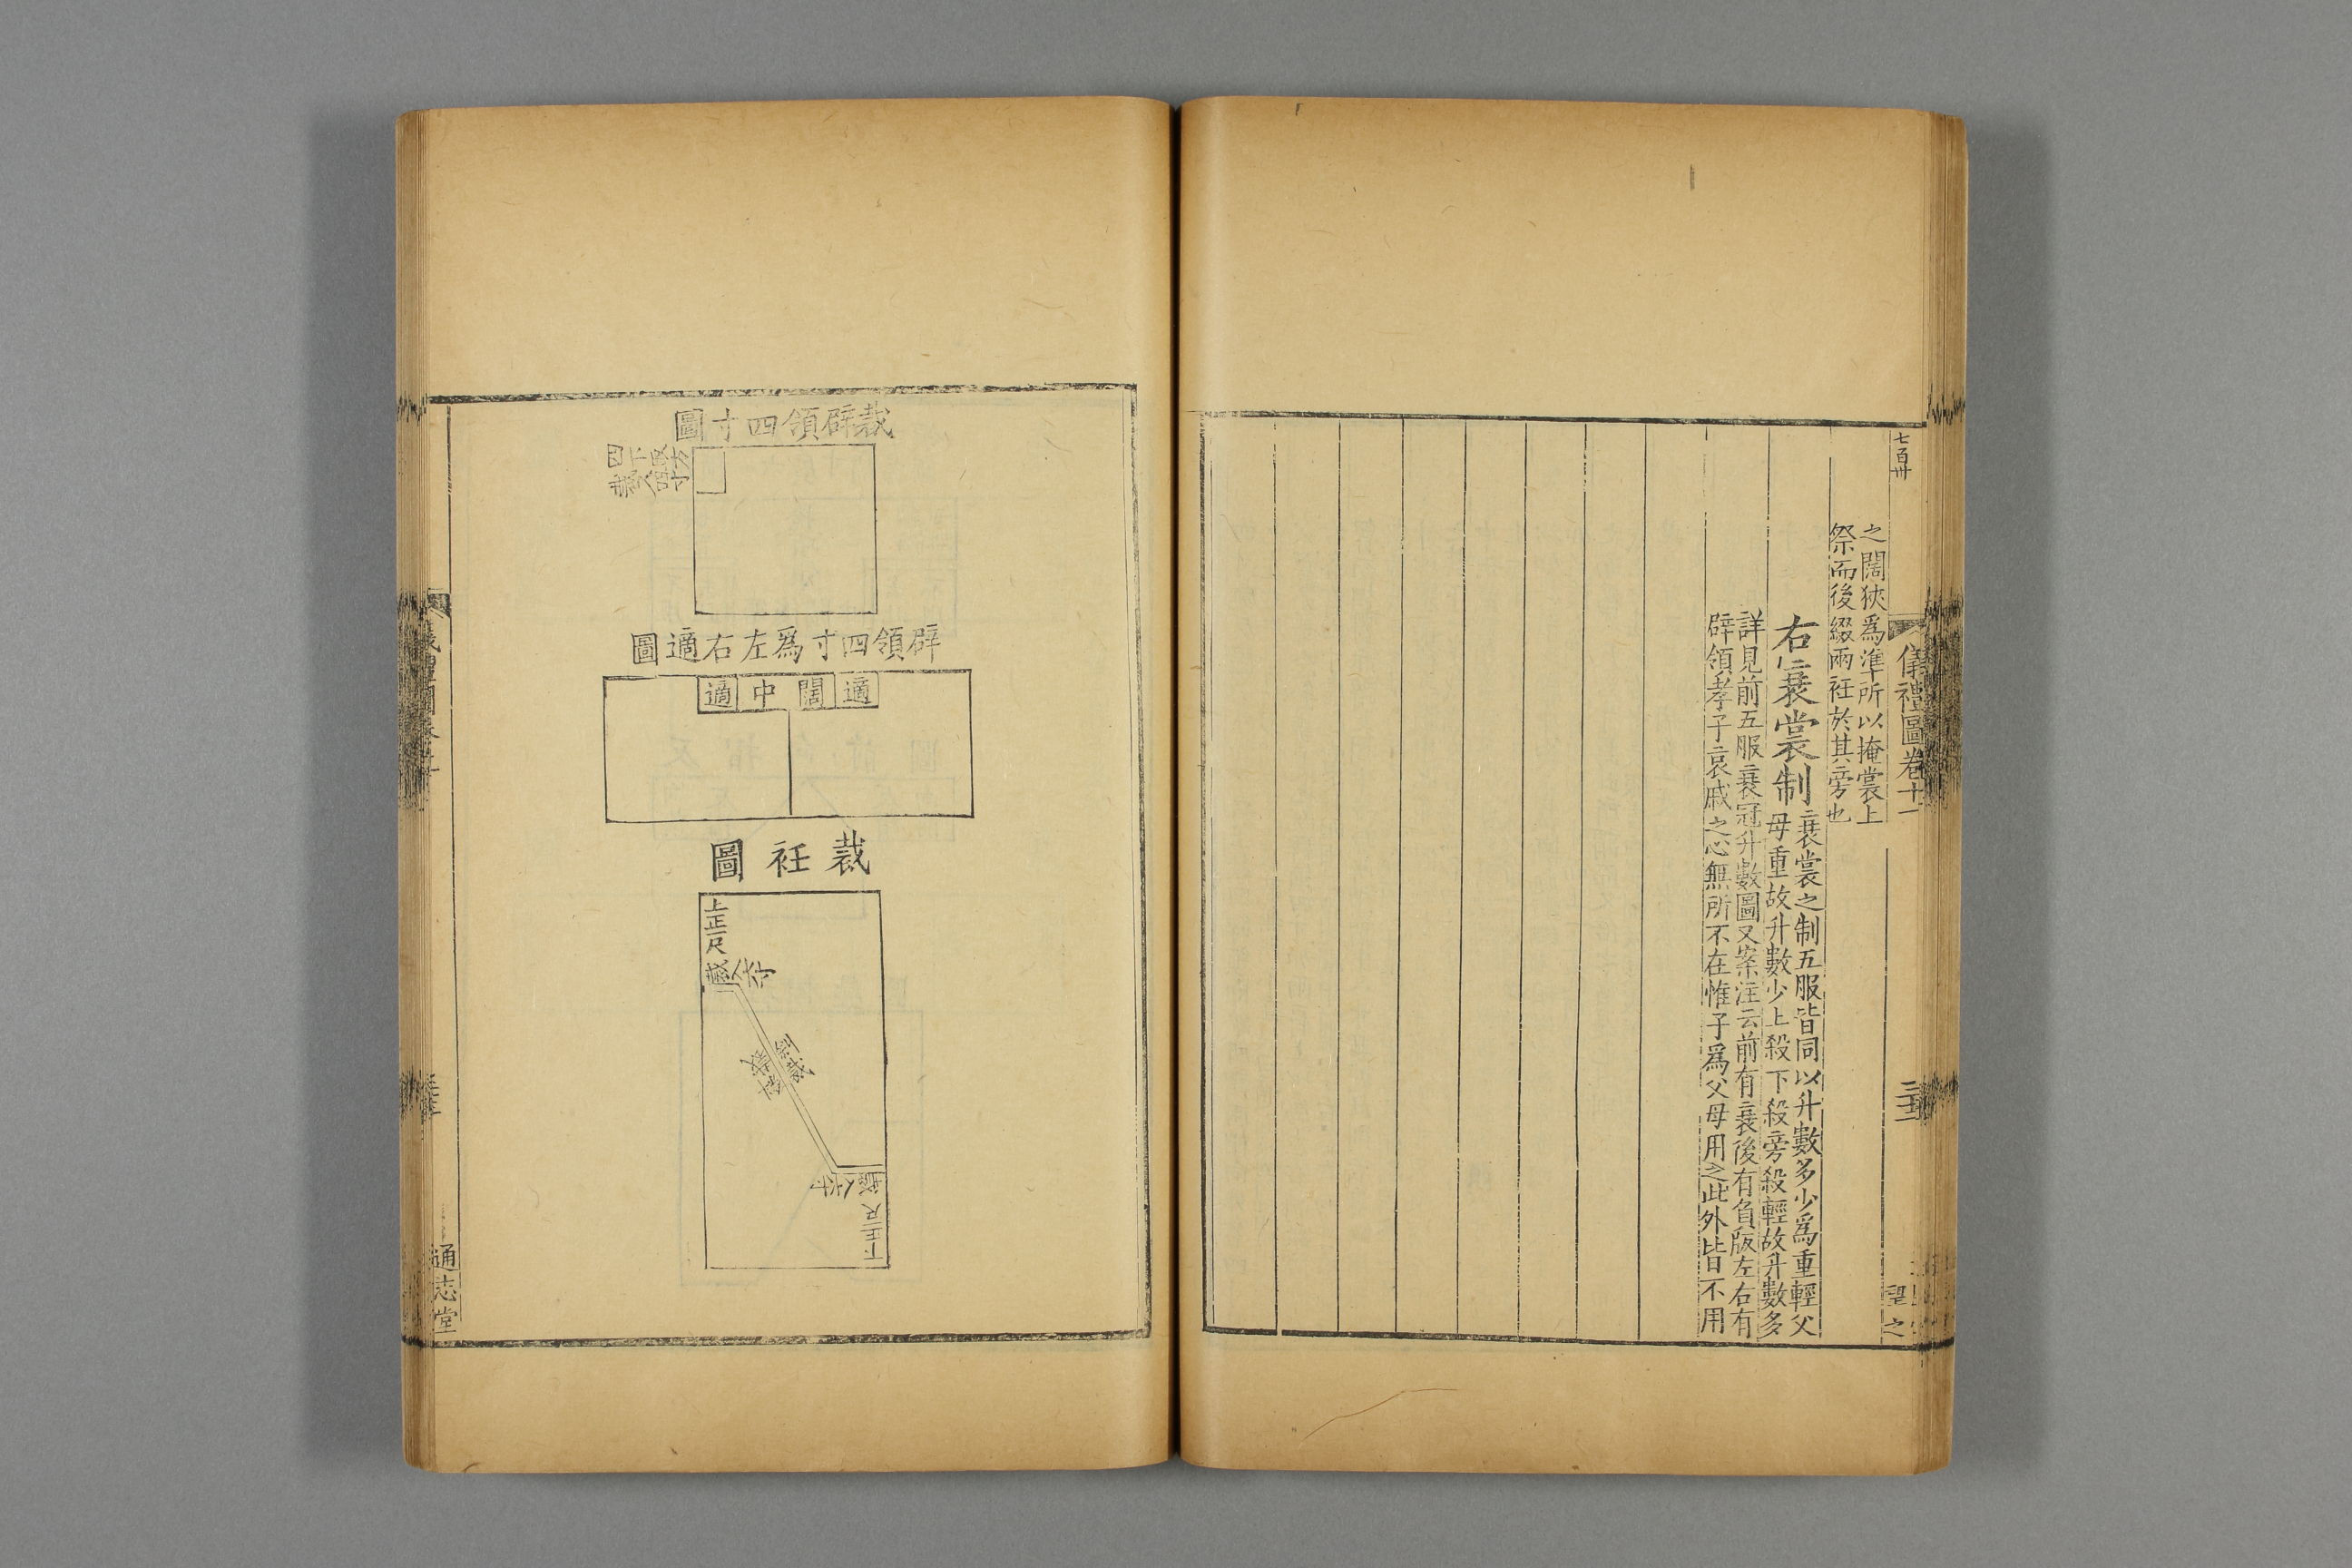 七百卅
儀禮圖卷十一
望之
之闊狹爲準所以掩裳上
祭而後綴兩衽於其旁也
右衰裳制
衰裳之制五服皆同以升數多少爲重輕父
母重故升數少上殺下殺旁殺輕故升數多
詳見前五服衰冠升數圖又案注云前有衰後有負版左右有
辟領孝子哀戚之心無所不在惟子爲父母用之此外皆不用
裁辟領四寸圖
辟領四寸爲左右適圖
適
闊
中
適
裁衽圖
上正一尺
裁入六寸
裁入六寸
下正一尺
通志堂